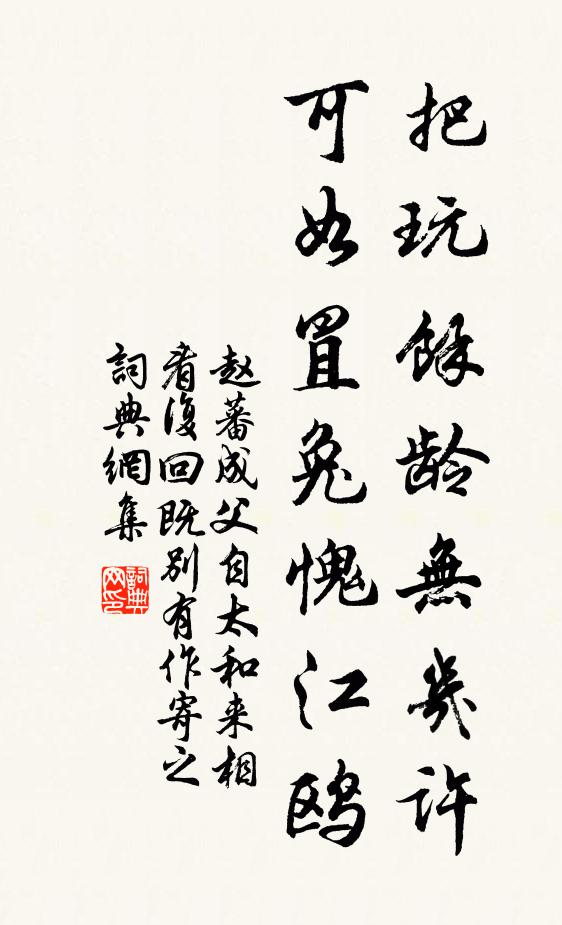 把玩餘龄無幾许
可如罝兔愧江鸥
赵蕃成父自太和来相
看復回既别有作寄之
詞典網集
詞典
网印